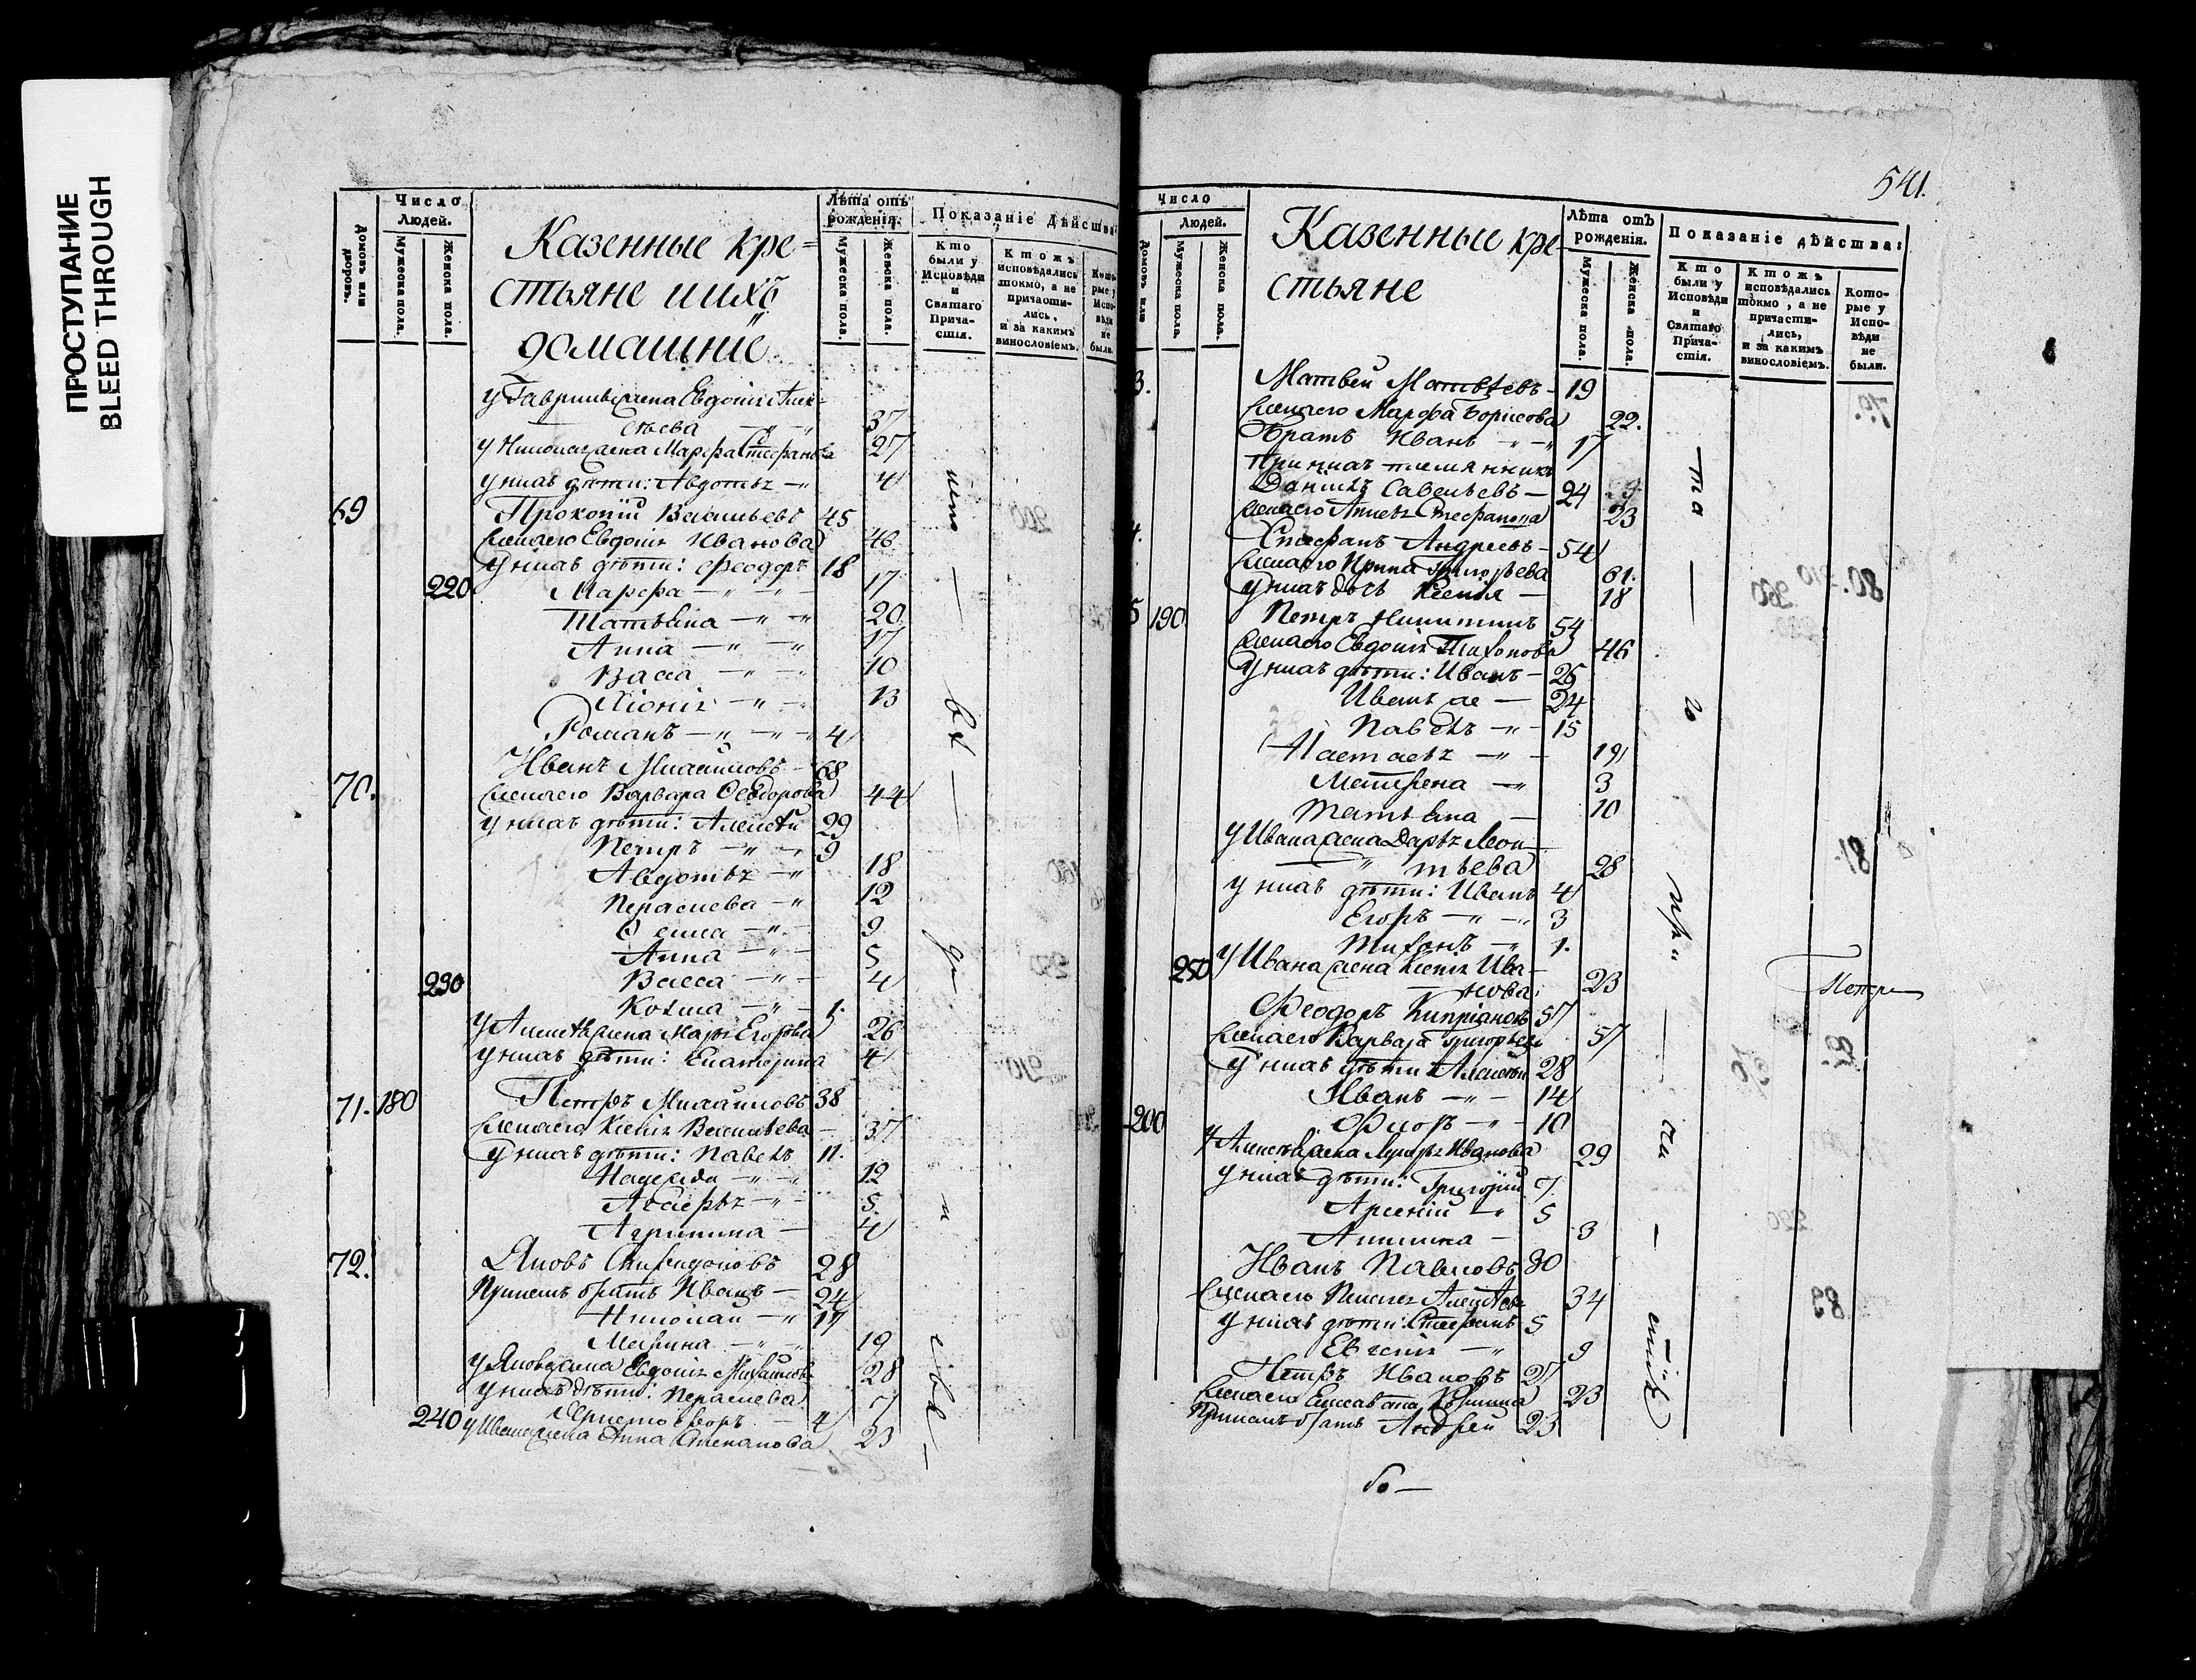 ПРОСТУПАНИЕ
BLEED THROUGH
Число
Людей.
Домовъ или дворовъ.
Мужеска пола.
Женска пола.
Казенные кре=
стьяне и ихъ
домашніе
Лѣта отъ
рожденія.
Мужеска пола.
Женска пола.
Показаніе дѣйства:
Кто были у Исповѣди и Святаго Прича-стія.
Ктожъ исповѣдались токмо, а не причасти-лись, и за какимъ винословіемъ.
Кото-рые у Испо-вѣди не были.
у Гаврила жена Евдокія Алек-
сѣева 37
у Николая жена Марѳа Стефанова 27
у нихъ дѣти: Авдотья 4
69 Прокопій Васильевъ 45
жена его Евдокія Иванова 46
у нихъ дѣти: Феодоръ 18
220 Марфа 17
Татьяна 20
Анна 17
Васса 10
Хіонія 13
Романъ 4
70. Иванъ Михайловъ 68
жена его Варвара Ѳедорова 44
у нихъ дѣти: Алексѣй 29
Петръ 9
Авдотья 18
Парасковья 12
9
Анна 5
230 Васса 4
Козма 1.
у Алексѣя жена Марья Егорова 26
у нихъ дѣти: Екатерина 4
71. 180 Петръ Михайловъ 38
жена его Ксенія Васильева 37
у нихъ дѣти: Павелъ 11.
Надежда 12
5.
Агрипина 4
72. Яковъ Спиридоновъ 28
Прикемъ братъ Иванъ 24
Николай 17
Марина 19
у Якова жена Евдокія Михайлова 28
у нихъ дѣти: Парасковья 7
Христофоръ 4
240 у Ивана жена Анна Степанова 23
541.
Число
Людей.
Домовъ или
Мужеска пола
Женска пола.
Казенные кре-
стьяне
Лѣта отъ
рожденія.
Мужеска пола.
Женска пола.
Показаніе дѣйства:
Кто были у Исповѣди и Святаго Прича-стія.
Ктожъ исповѣдались токмо, а не причасти-лись, и за какимъ винословіемъ.
Кото-рые у Испо-вѣди не были.
3. Матвей Матвѣевъ 19
жена его Марфа Борисова 22.
Братъ Иванъ 17
При нихъ племянникъ
Даніилъ Савельевъ 24
жена его Стефанова 23
4. Стефанъ Андреевъ 54
жена его Ирина Григорьева 61.
у нихъ дочь Ксенія 18
5 190. Петръ Никитинъ 54
жена его Евдокія Тихонова 46
у нихъ дѣти: Иванъ 25
Иванъ же 24
Павелъ 15
Настасья 19
Матрена 3
Татьяна 10
у Ивана жена Дарья Леон-
тьева 28
у нихъ дѣти: Иванъ 4
Егоръ 3
Тихонъ 1.
250 у Ивана жена Ксенія Ива-
нова 23
Феодоръ Кипріановъ 57
жена его Варвара Григорьева 57
у нихъ дѣти Алексѣй 28
Иванъ 14
200 Флоръ 10
у Алексѣя жена Лукерья Иванова 29
у нихъ дѣти: Григорій 7.
Арсеній 5
3
Иванъ Павловъ 30
жена его Алексѣева 34
у нихъ дѣти: Стефанъ 5
Евгенія 9
Петръ Ивановъ 27
жена его Елисавета Козмина 23
При немъ братъ Андрей 23